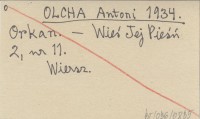 OLCHA Antoni 1934.
Orkan. — Wieś Jej Pieśń
2, nr 11.
Wiersz.